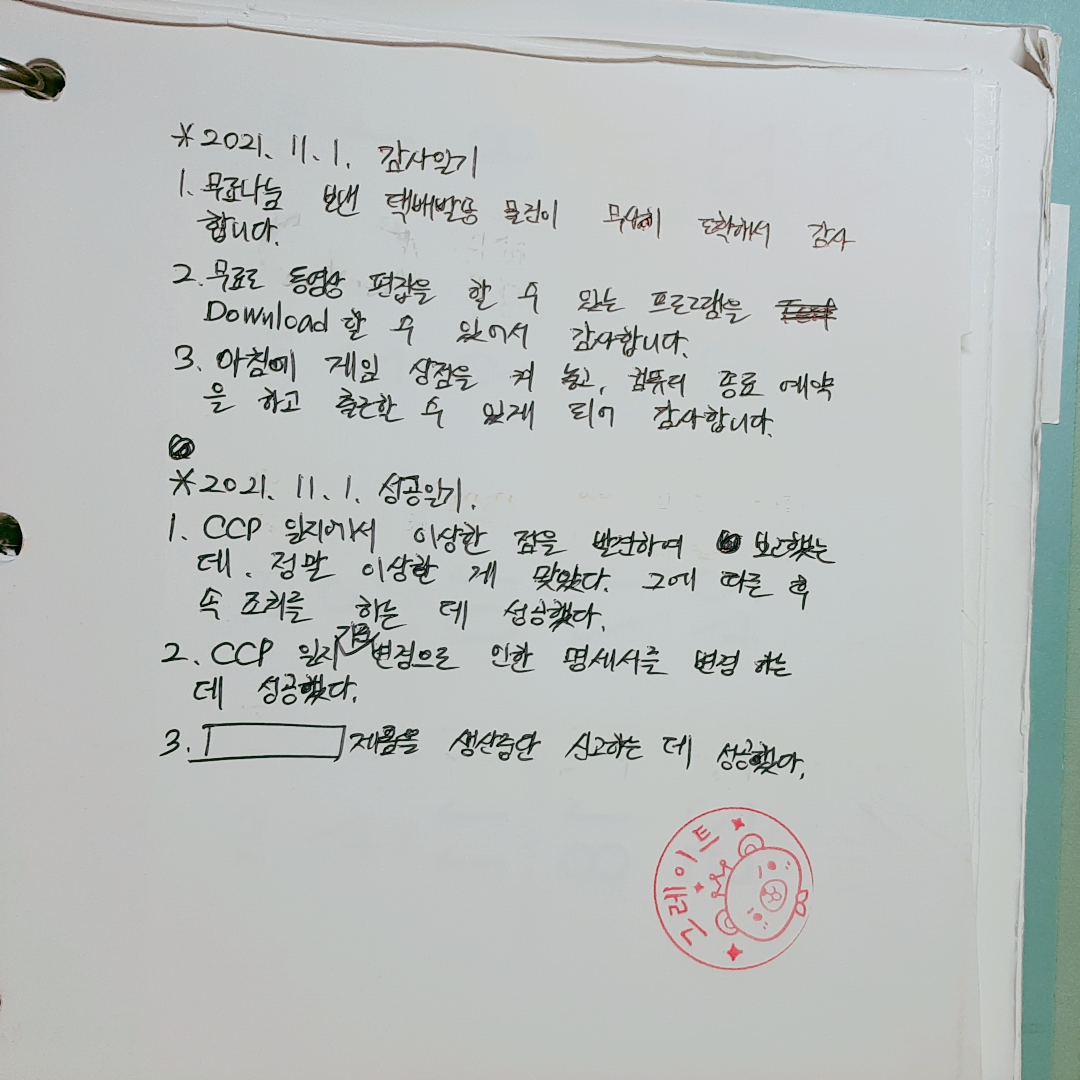 *2021. 11. 1. 감사일기
1. 무료나눔 보낸 택배발송 물건이 무사히 도착해서 감사
합니다.
2. 무료로 동영상 편집을 할 수 있는 프로그램을
Download 할 수 있어서 감사합니다.
3. 아침에 게임 상점을 켜 놓고, 컴퓨터 종료 예약
을 하고 출근할 수 있게 되어 감사합니다.
*2021. 11. 1. 성공일기.
1. CCP 일지에서 이상한 점을 발견하여 보고했는
데, 정말 이상한 게 맞았다. 그에 따른 후
속 조치를 하는 데 성공했다.
2. CCP 일지 변경으로 인한 명세서를 변경 하는
데 성공했다.
3. 제품을 생산중단 신고하는 데 성공했다.
그레이트